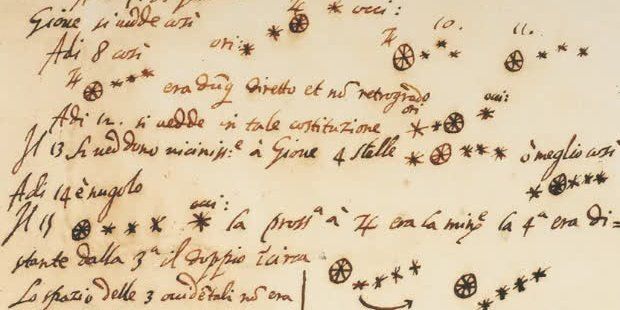 Gione si vedde così ♃ occi:
Adi 8 così ori: ♃ 10. 11.
♃ era dūq diretto et nō retrogrado
Adi 12. si vedde in tale costituzione ori: occi:
Il 13 si veddono viciniss.e à Gione 4 stelle ò meglio così
Adi 14 è nugolo
Il 15 occi: la pross.a à ♃ era la min.e la 4.a era di=
stante dalla 3.a il doppio circa
Lo spazio delle 3 occidētali nō era